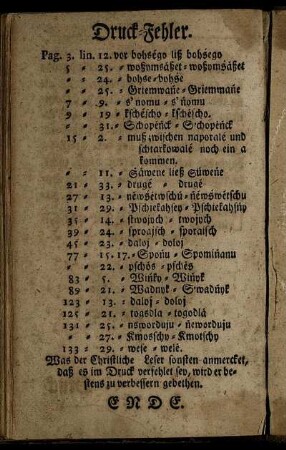 Druck-Fehler.
Pag. 3. lin. 12. vor bohségo liß bohsego
5 " 25. " woßymsáßet " woßymsäßet
" " 24. " bohse " bohse
" " 25. " Griemwañe " Griemwañe
7 " 9. " s'nomu " s'ñomu
9 " 19 " kschéscho " kschéscho.
" " 31. " Schopéñck " S'chopéñck
15 " 2. " muß zwischen naporale und
schtarkowalé noch ein a
kommen.
" " 11. " Sáwene ließ Súweñe
21 " 33. " drugé " drugé
27 " 13. " néwsétwschú " ñéwswétschu
31 " 29. " Pschiekahsey " Pschiekahsñy
35 " 14. " stwojych " twojych
39 " 24. " sproajsch " sporaisch
45 " 23. " daloj " doloj
77 " 15. 17. " Spoñu " Spomiñanu
" " 22. " pschés " pschés
83 " 5. " Wuñky " Wiñyk
89 " 21. " Wadnyk " S'wadñyk
123 " 13. " daloj " doloj
125 " 21. " togodla " togodlá
131 " 25. " nsworduju " ñeworduju
" " 27. " Kmosschy " Kmotschy
133 " 29. " wese " welé.
Was der Christliche Leser sonsten anmercket,
daß es im Druck versehlet sey, wird er be-
stens zu verbessern gebethen.
E N D E.